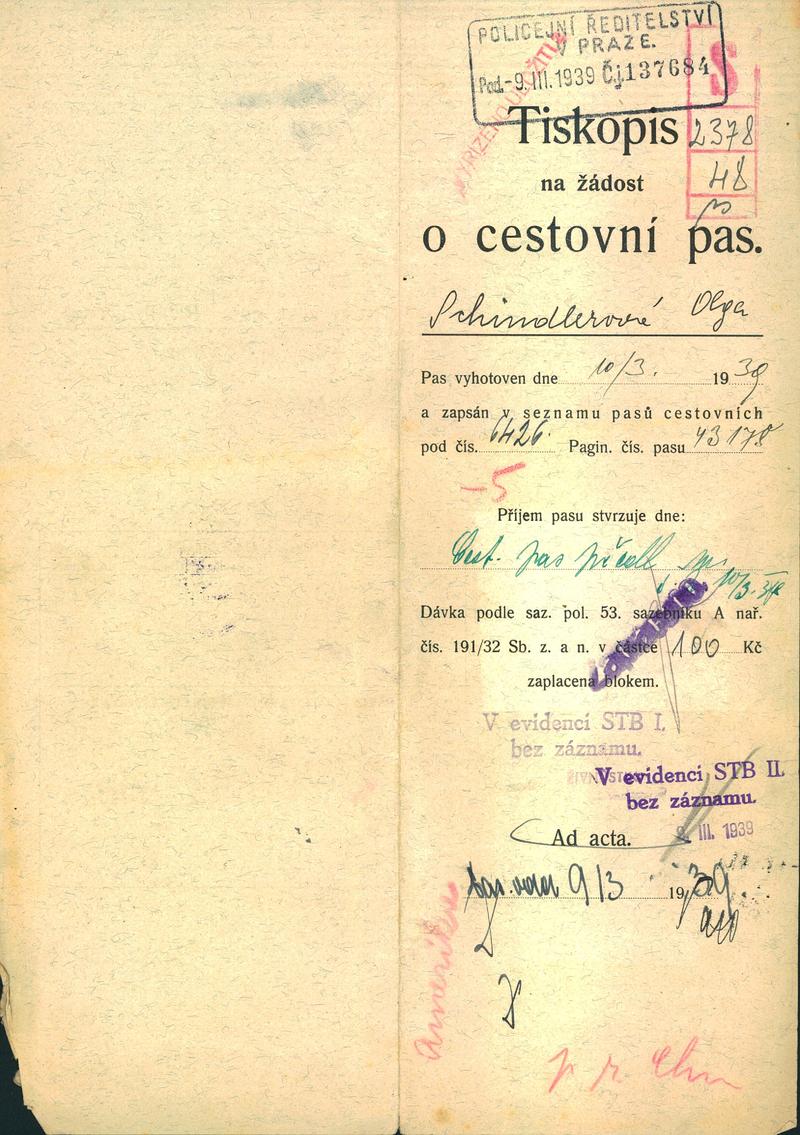 POLICEJNÍ ŘEDITELSTVÍ
V PRAZE.
Pod. -9. III. 1939 Čj. 137684
S
VYŘÍZENO ULOŽITI
Tiskopis
2378
na žádost
48
o cestovní pas.
Schindlerová Olga
Pas vyhotoven dne 10/3. 1939
a zapsán v seznamu pasů cestovních
pod čís. 6426. Pagin. čís. pasu 43178
-5
Příjem pasu stvrzuje dne:
Cest. pas
10/3. 39
Dávka podle saz. pol. 53. sazebníku A nař.
čís. 191/32 Sb. z. a n. v částce 100 Kč
zaplacena blokem.
Zaplaceno
V evidenci STB I.
bez záznamu.
V evidenci STB II.
bez záznamu.
Ad acta.
9. III. 1939
9/3 1939.
Amerika